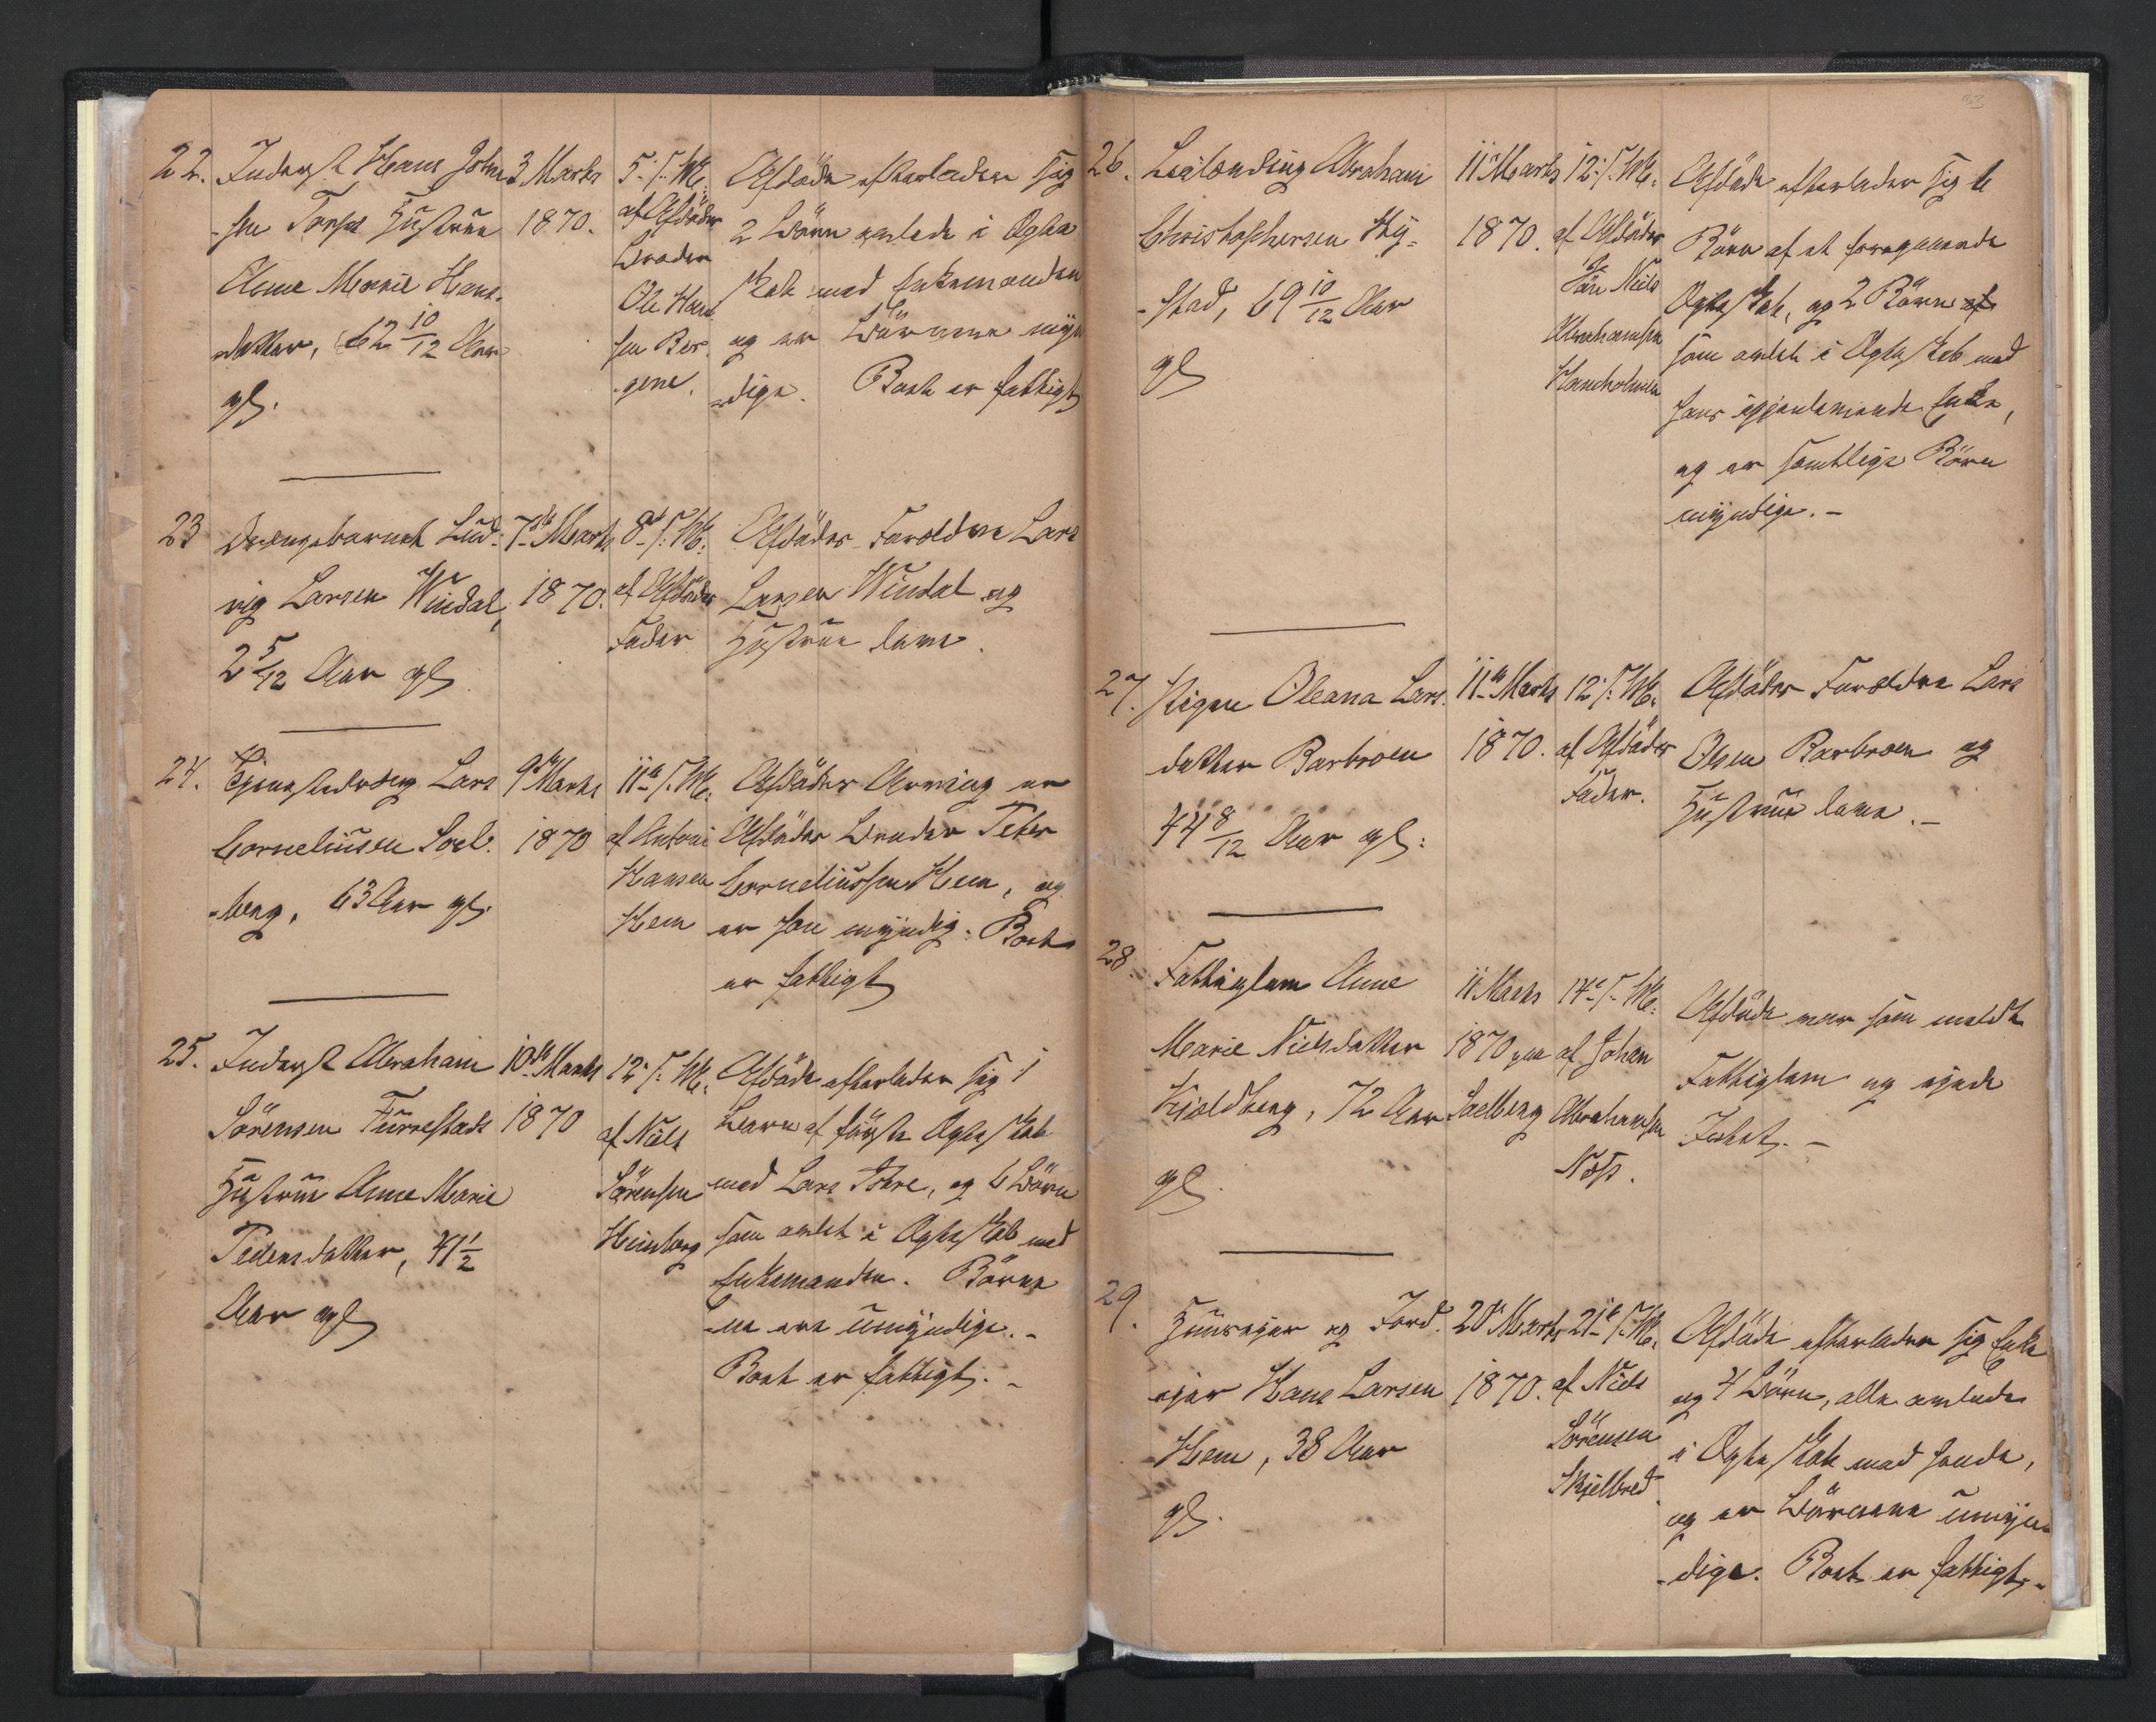 22. Inderst Hans John-
sen Torps Hustrue
Anne Marie Hans-
datter, 62 10/12 Aar
gl.
3 Marts
1870.
5. s. M.
af Afdødes
Broder
Ole Han-
sen Ber-
gene.
Afdøde efterlader sig
2 Børn avlede i Ægte-
skab med Enkemanden
og er Børnene myn-
dige. Boet er fattigt
23 Drengebarnet Lud-
vig Larsen Windal,
2 5/12 Aar gl
7de Marts
1870.
8de s. M.
af Afdødes
Fader
Afdødes Foreldre Lars
Larsen Windal og
Hustrue leve.
24. Tjenestedreng Lars
Corneliusen Soel-
berg, 63 Aar gl.
9de Marts
1870
11te s. M.
af Antoni
Hansen
Hem
Afdødes Arving er
Afdødes Broder Peter
Corneliussen Hem, og
er han myndig. Boet
er fattigt
25. Inderst Abraham
Sørensen Furrestads
Hustrue Anne Marie
Pedersdatter, 41 1/2
Aar gl
10de Marts
1870
12te s. M.
af Niels
Sørensen
Heimberg
Afdøde efterlader sig 1
Barn af første Ægteskab
med Lars, og 6 Børn
som avlet i Ægteskab med
Enkemanden. Børne-
ne ere umyndige.
Boet er fattigt.
26. Leilending Abraham
Christophersen Hy-
stad, 69 10/12 Aar
gl
11te Marts
1870.
12te s. M.
af Afdødes
Søn Niels
Abrahamsen
Haneholmen
Afdøde efterlader sig 6
Børn af et foregaaende
Ægteskab, og 2 Børn
som avlet i Ægteskab med
hans igjenlevende Enke,
og er samtlige Børn
myndige.
27. Pigen Oleana Lars-
datter Barbroen
44 8/12 Aar gl:
11te Marts
1870.
12te s. M.
af Afdødes
Fader.
Afdødes Foreldre Lars
Olsen Barbroen og
Hustrue leve.
28. Fattiglem Anne
Marie Nielsdatter
Kjoldberg, 72 Aar
gl.
11te Marts
1870 paa
Soelberg
14de s. M.
af Johan
Abrahamsen
Næs.
Afdøde var som meldt
Fattiglem og ejede
Intet.
29. Huuseejer og Jord-
ejer Hans Larsen
Hem, 38 Aar
gl.
20de Marts
1870.
21de s. M.
af Niels
Sørensen
Skjelbred
Afdøde efterlader sig Enke
og 4 Børn, alle avlede
i Ægteskab med hende,
og er Børnene umyn-
dige. Boet er fattigt.